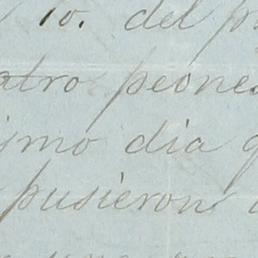 10. del
atro peones
ismo dia
pusieron